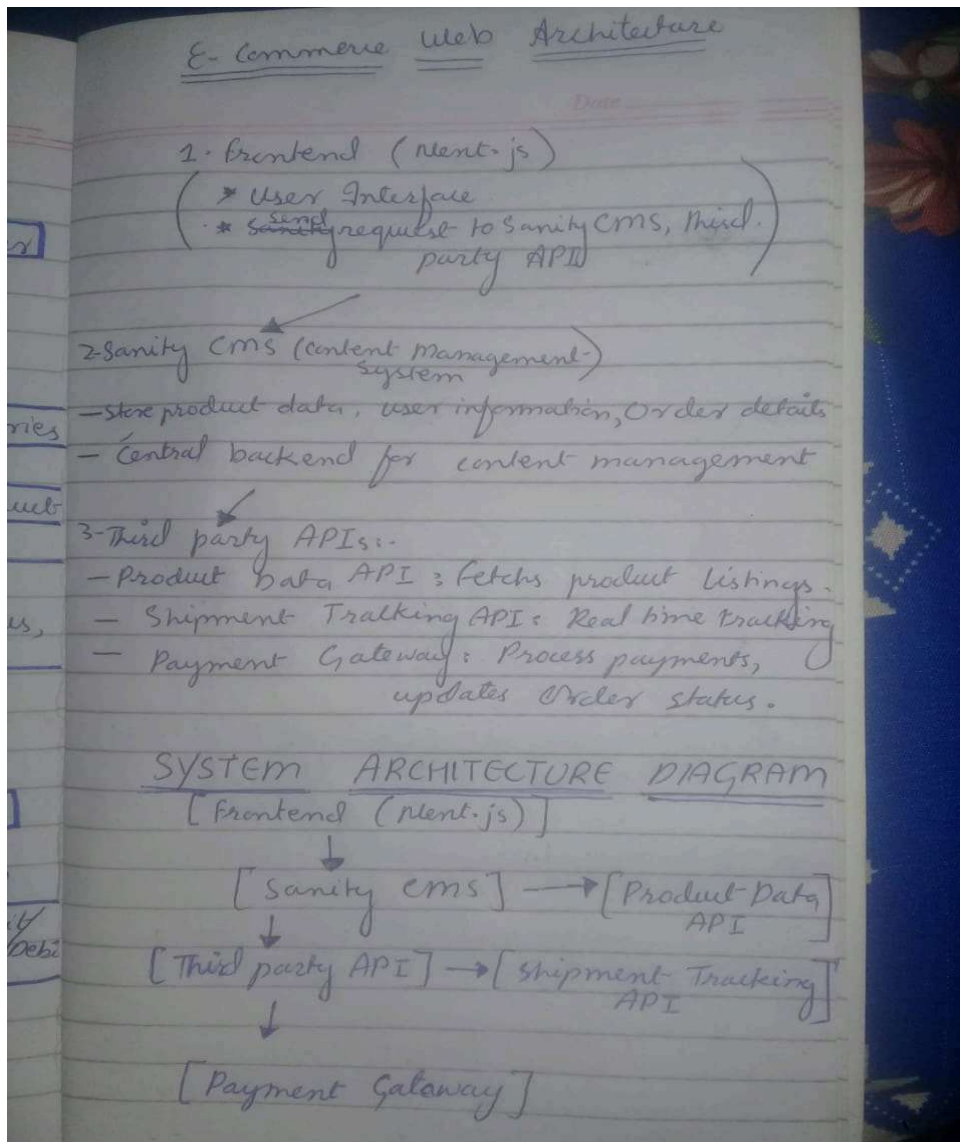 E-Commerce Web Architecture
Date
1. Frontend (Next.js)
* User Interface
* send request to Sanity CMS, third
party API
2-Sanity CMS (Content Management
System)
- Store product data, user information, Order details
- Central backend for content management
3-Third party APIs:-
- Product Data API : Fetchs product Listings.
- Shipment Tracking API : Real time tracking
- Payment Gateway : Process payments,
updates Order status.
SYSTEM ARCHITECTURE DIAGRAM
[Frontend (Next.js)]
[Sanity CMS] → [Product Data
API]
[Third party API] → [Shipment Tracking
API]
[Payment Gateway]